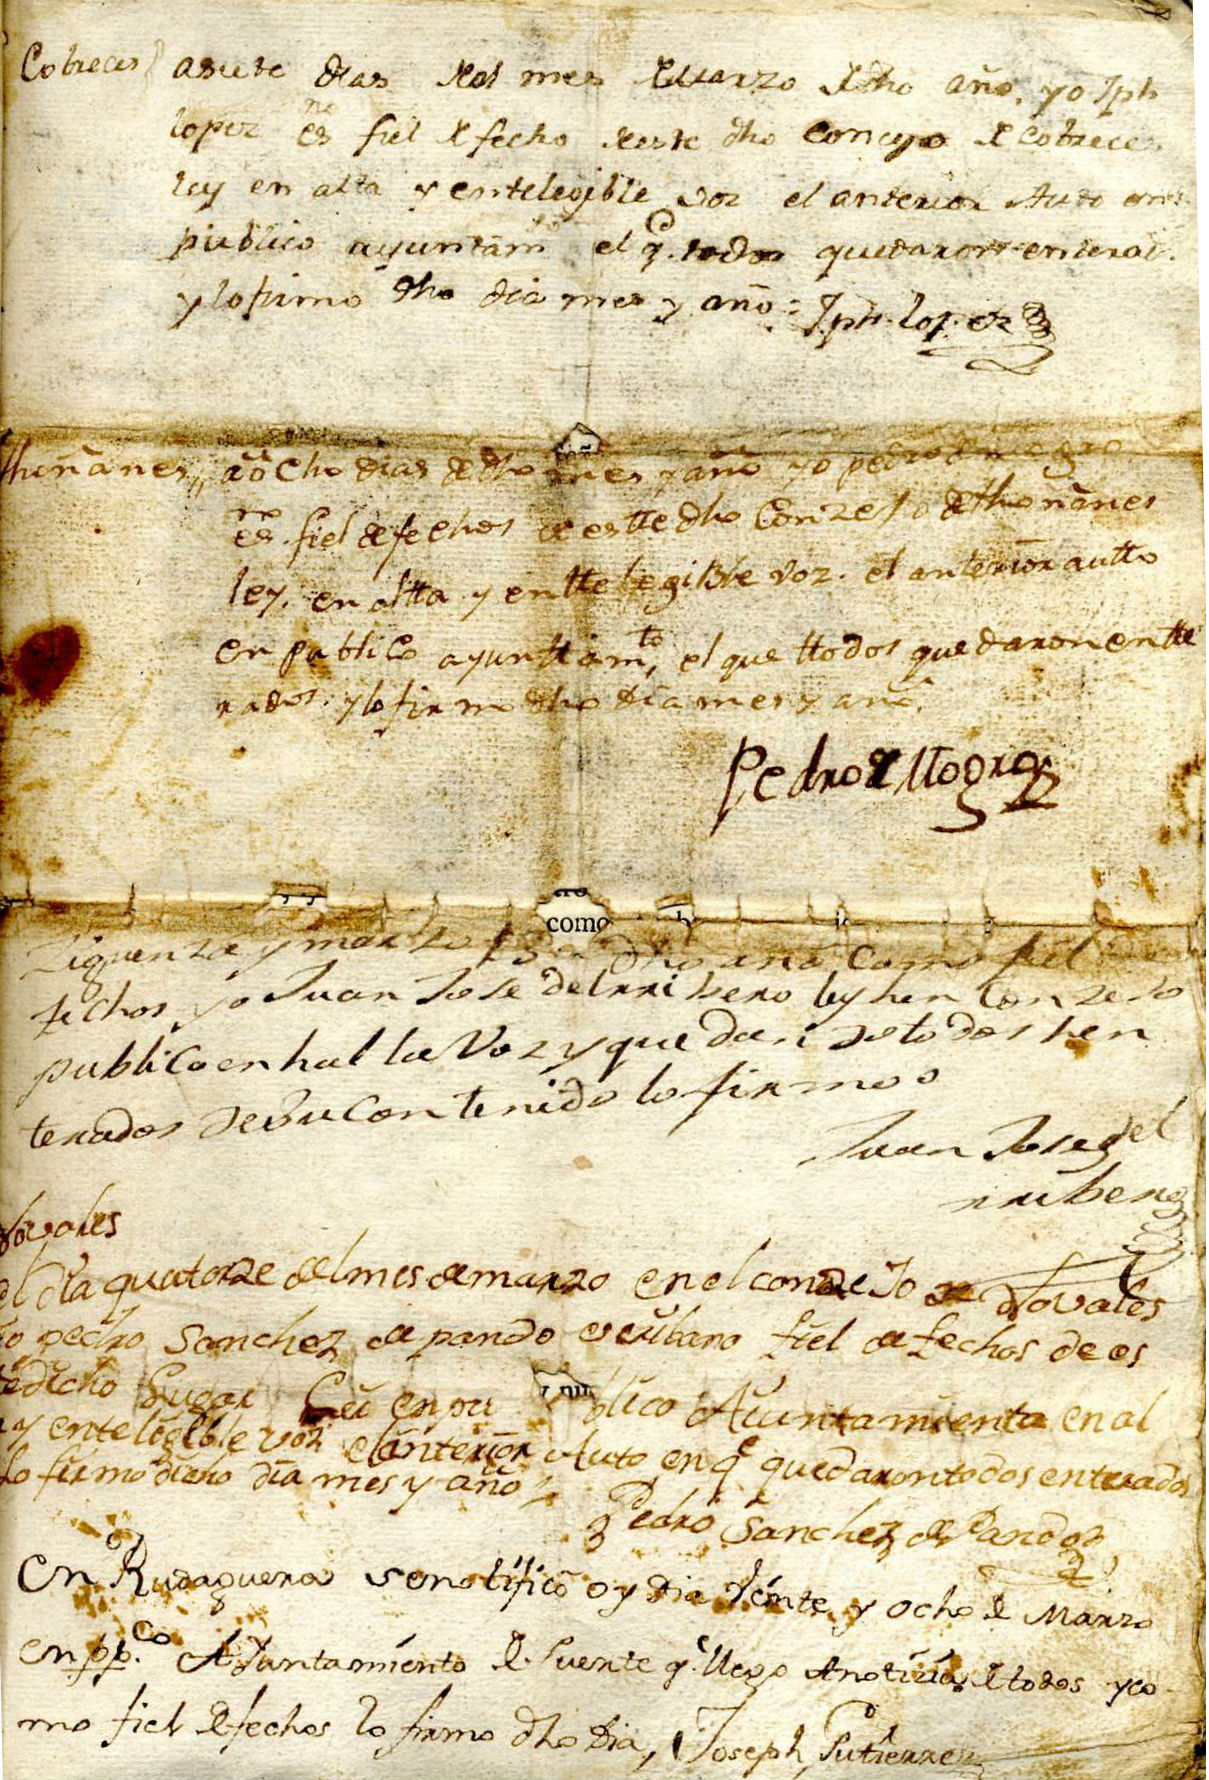 Cobreces asiete dias del mes de Marzo de dho año, yo Jph
lopez es.no fiel de fecho deeste dho Concejo de Cobreces
ley en alta y entelegible voz el anterior Auto en
publico ayuntam.to el q.e todos quedaron enterad.
y lo firmo dho dia mes y año = Jph. lopez
thoñanes,, a ocho dias de dho mes y año yo pedro de negro
es.no fiel de fechos de estte dho Conzejo de thoñanes
ley. en altta y enttelegible voz. el anterior autto
en publico ayunttam.to, el que ttodos quedaron entte
rados. y lo firmo dho dia mes y año.
Pedro de
Ziguenza y marzo 13 de Dho año Como fiel de
fechos yo Juan Jose del rribero ley hen Conzejo
publico en halta Voz y quedando todos hen
terados de su Contenido lo firmo
Juan Jose del
rribero
Novales
el dia quatorze del mes de marzo en el conzeJo de Novales
Yo pedro Sanchez de pando escribano fiel de fechos de es
te dicho Lugar Lei en pu blico Aiuntamiento en al
ta y entelegible voz el anterior Auto en q.e quedaron todos enterados
Lo firmo dicho dia mes y año
Pedro Sanchez de Pando
En Rudaguera se notifico oy dia veinte y ocho de Marzo
en pp.co AJuntamiento de Suerte q.e llego A noticia de todos y co
mo fiel de fechos lo firmo dho Dia, Joseph Gutierrez
como